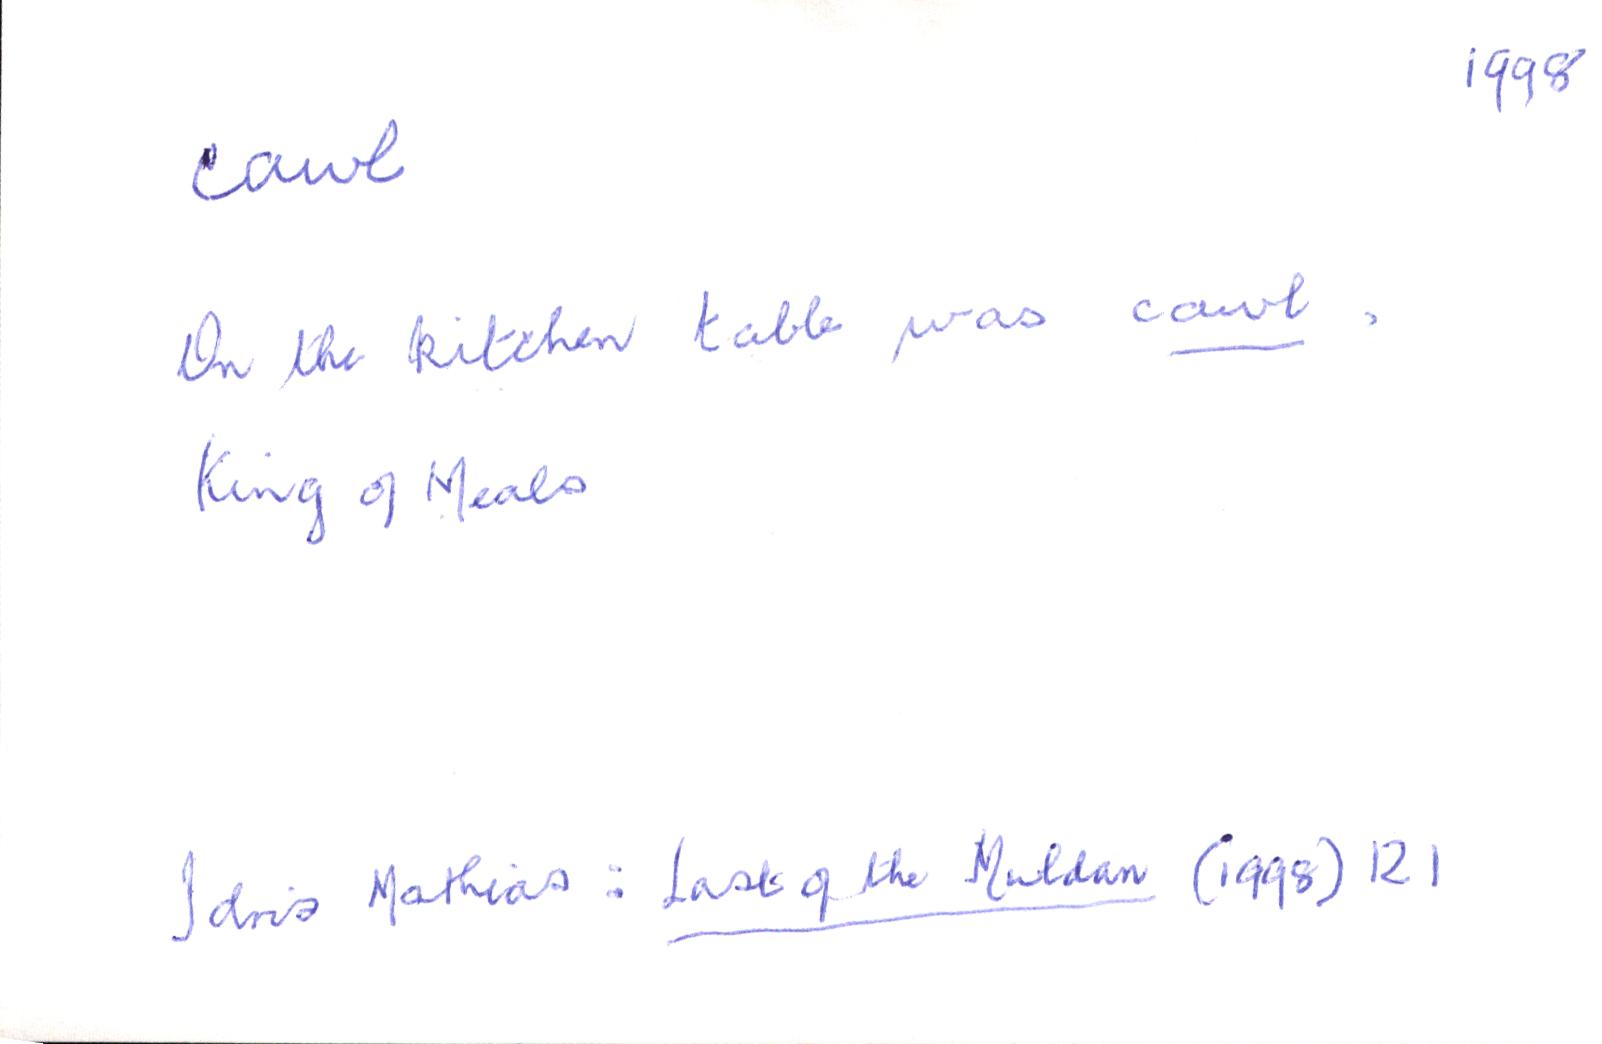 1998
cawl
On the kitchen table was cawl,
King of Meals
Idris Mathias : Last of the Muldan (1998) 121